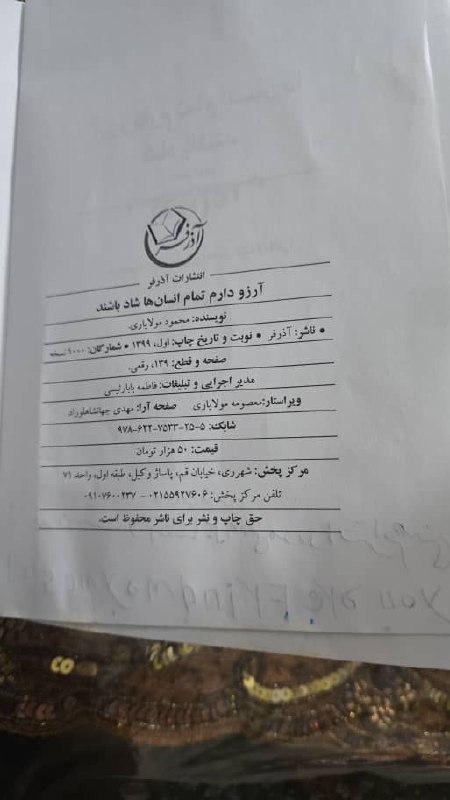 آذرفر
انتشارات آذرفر
آرزو دارم تمام انسان‌ها شاد باشند
نویسنده: محمود مولایاری.
• ناشر: آذرفر • نوبت و تاریخ چاپ: اول، ۱۳۹۹ • شمارگان: ۱۰۰۰ نسخه
صفحه و قطع: ۱۳۹، رقعی.
مدیر اجرایی و تبلیغات: فاطمه بابارئیسی
ویراستار: معصومه مولایاری صفحه آرا: مهدی جهانشاهلوراد
شابک: ۵-۲۵-۷۵۳۳-۶۲۲-۹۷۸
قیمت: ۵۰ هزار تومان
مرکز پخش: شهرری، خیابان قم، پاساژ وکیل، طبقه اول، واحد ۷۱
تلفن مرکز پخش: ۰۲۱۵۵۹۲۷۶۰۶ - ۰۹۱۰۷۶۰۰۲۳۷
حق چاپ و نشر برای ناشر محفوظ است.
you are